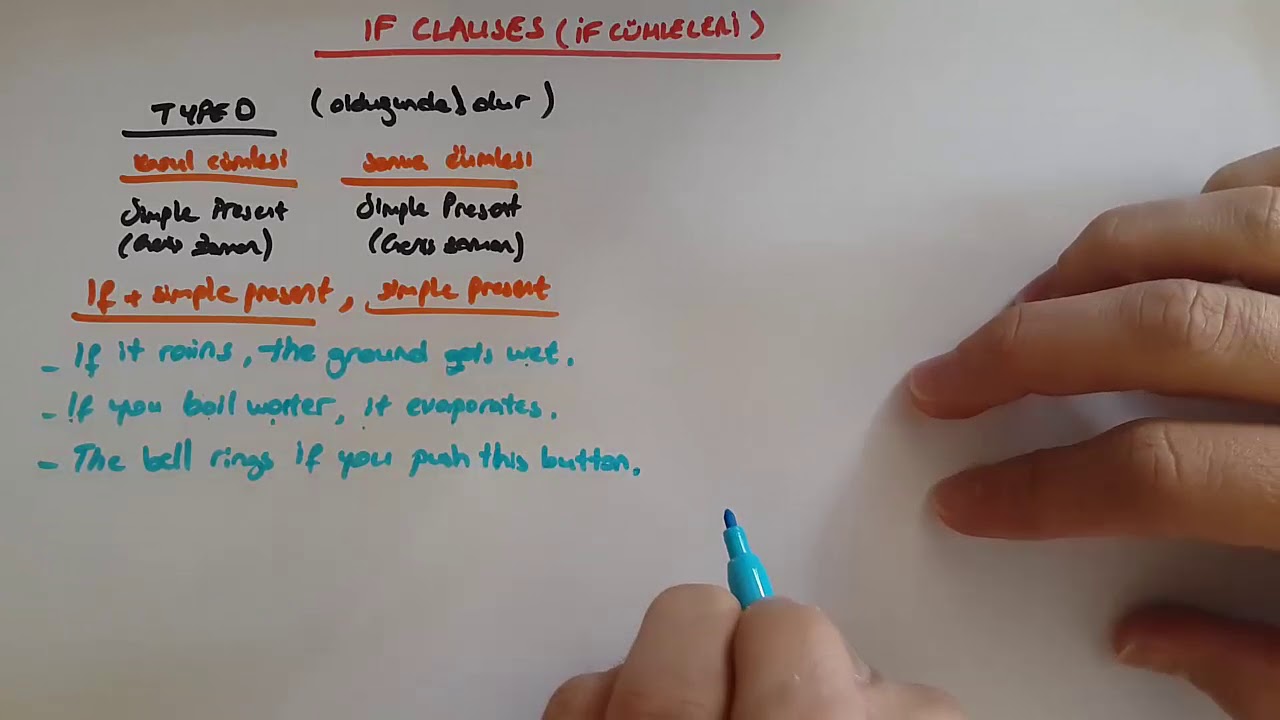 IF CLAUSES (İF CÜMLELERİ)
TYPE 0 (olduğunda, olur)
Koşul cümlesi Sonuç cümlesi
Simple Present Simple Present
(Geniş zaman) (Geniş zaman)
If + simple present, simple present
- If it rains, the ground gets wet.
- If you boil water, it evaporates.
- The bell rings if you push this button.